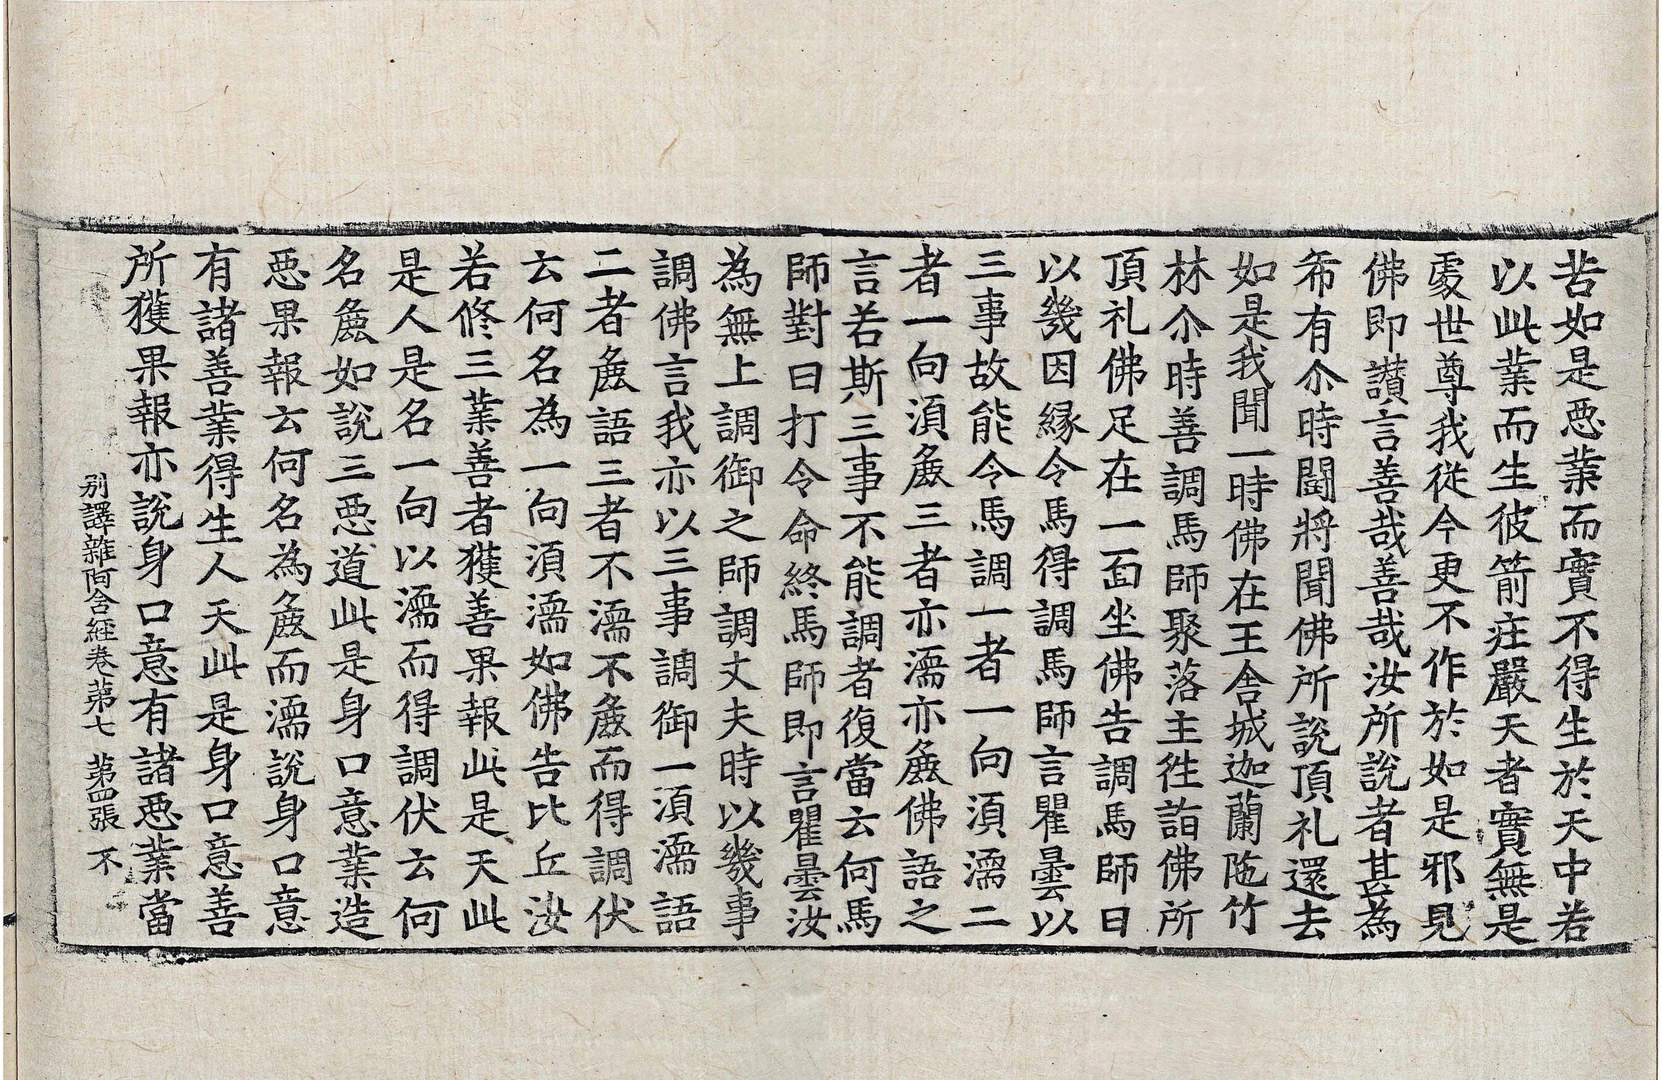 苦如是惡業而實不得生於天中若
以此業而生彼箭莊嚴天者實無是
處世尊我從今更不作於如是邪見
佛即讚言善哉善哉汝所說者甚為
希有尒時鬪將聞佛所說頂礼還去
如是我聞一時佛在王舍城迦蘭陁竹
林尒時善調馬師聚落主徃詣佛所
頂礼佛足在一面坐佛告調馬師曰
以幾因緣令馬得調馬師言瞿曇以
三事故能令馬調一者一向湏濡二
者一向湏麁三者亦濡亦麁佛語之
言若斯三事不能調者復當云何馬
師對曰打令命終馬師即言瞿曇汝
為無上調御之師調丈夫時以幾事
調佛言我亦以三事調御一湏濡語
二者麁語三者不濡不麁而得調伏
云何名為一向湏濡如佛告比丘汝
若修三業善者獲善果報此是天此
是人是名一向以濡而得調伏云何
名麁如說三惡道此是身口意業造
惡果報云何名為麁而濡說身口意
有諸善業得生人天此是身口意善
所獲果報亦說身口意有諸惡業當
別譯雜阿含經卷第七 第四張 不